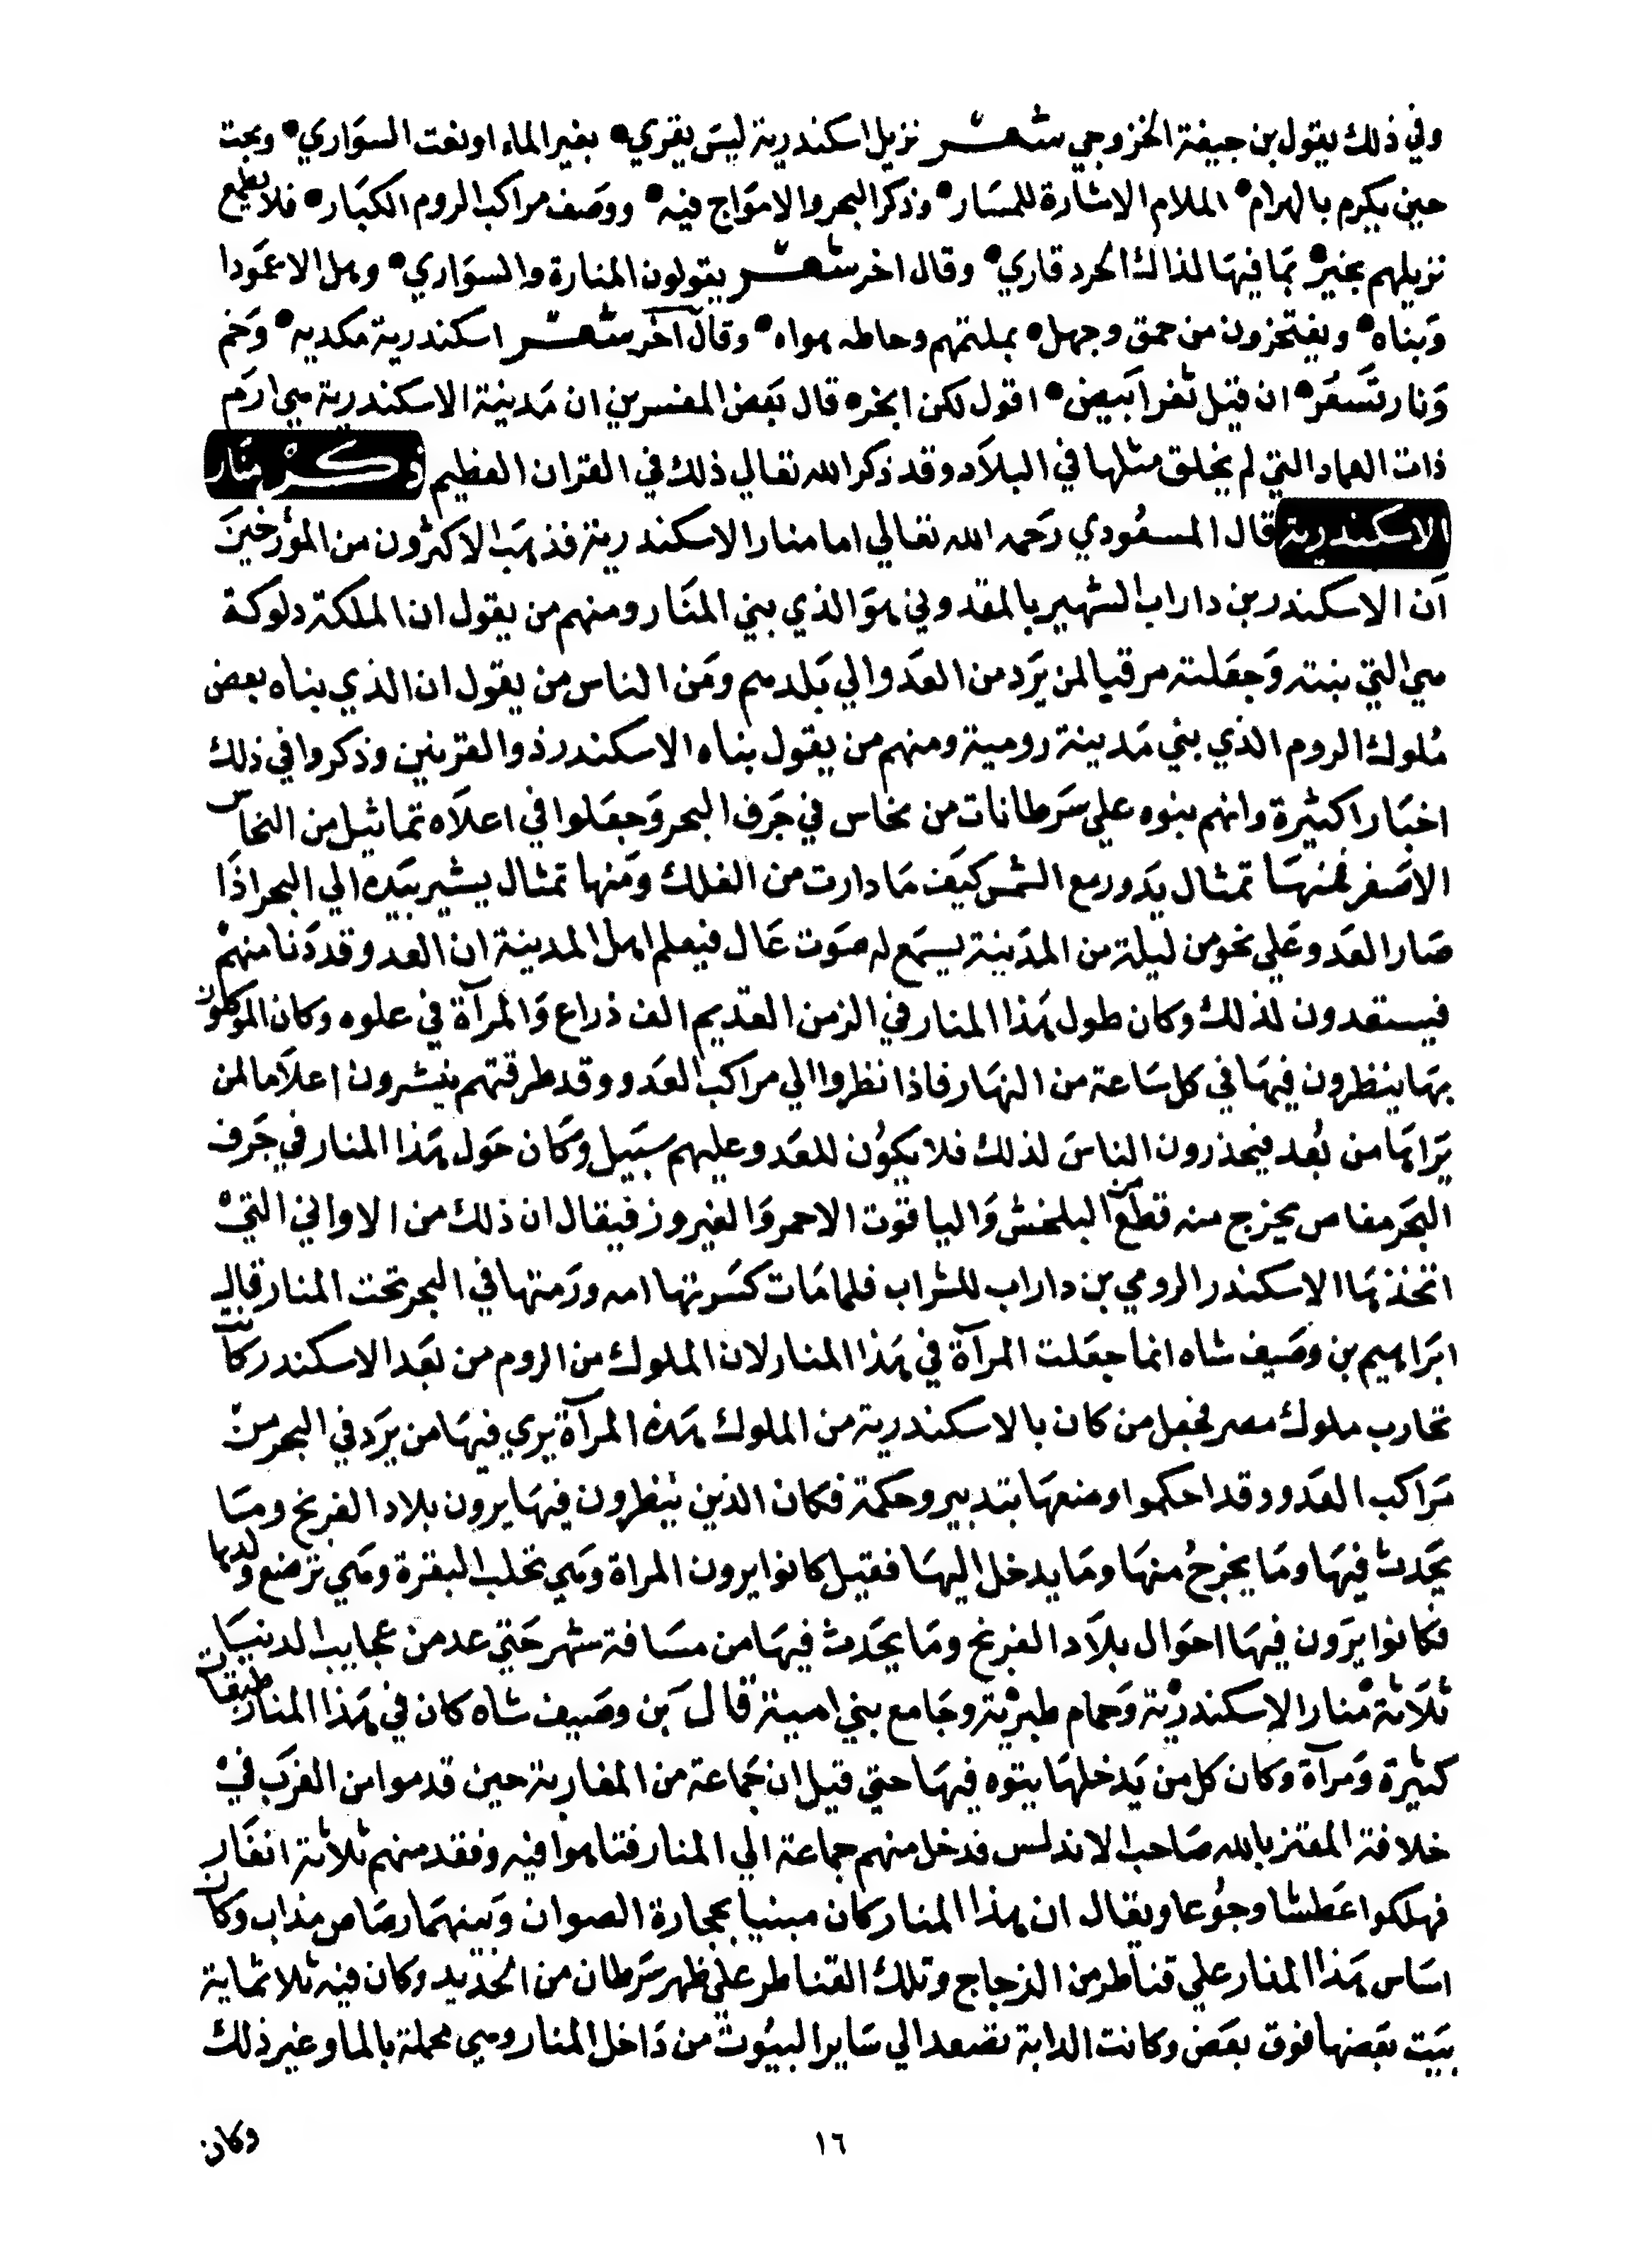 وفي ذلك يقول بن جيفة الخزوجي شعر نزيل اسكندرية ليس يقري بغير الماء او نعت السواري ويبحت
حين يكرم بالهرام الملام الاشارة للمسار وذكر البحر والامواج فيه ووصف مراكب الروم الكبار فلا يطمع
نزيلهم بخبز بما فيها لذاك الحرد قاري وقال اخر شعر يقولون المنارة والسواري وهل الا عمودا
وبناه ويفتخرون من حمق وجهل بملتهم وحاطه هواه وقال آخر شعر اسكندرية مكديه وخم
ونار تسعر ان قيل ثغر ابيض اقول لكن ابخره قال بعض المفسرين ان مدينة الاسكندرية هي ارم
ذات العماد التي لم يخلق مثلها في البلاد وقد ذكر الله تعالي ذلك في القران العظيم ذكر منار
الاسكندرية قال المسعودي رحمه الله تعالي اما منار الاسكندرية فذهب الاكثرون من المؤرخين
ان الاسكندر بن داراب الشهير بالمقدوني هو الذي بني المنار ومنهم من يقول ان الملكة دلوكة
هي التي بنته وجعلته مرقبا لمن يرد من العدو الي بلدهم ومن الناس من يقول ان الذي بناه بعض
ملوك الروم الذي بني مدينة رومية ومنهم من يقول بناه الاسكندر ذو القرنين وذكروا في ذلك
اخبارا كثيرة وانهم بنوه علي سرطانات من نحاس في جرف البحر وجعلوا في اعلاه تماثيل من النحاس
الاصفر فمنها تمثال يدور مع الشمس كيف ما دارت من الفلك ومنها تمثال يشير بيده الي البحر اذا
صار العدو علي نحو من ليلة من المدينة يسمع له صوت عال فيعلم اهل المدينة ان العدو قد دنا منهم
فيستعدون لذلك وكان طول هذا المنار في الزمن القديم الف ذراع والمرآة في علوه وكان الموكلون
بها ينظرون فيها في كل ساعة من النهار فاذا نظروا الي مراكب العدو وقد طرقتهم ينشرون اعلاما لمن
يراها من بعد فيحذرون الناس لذلك فلا يكون للعدو عليهم سبيل وكان حول هذا المنار في جرف
البحر مغاص يخرج منه قطع من البلخش والياقوت الاحمر والفيروز فيقال ان ذلك من الاواني التي
اتخذها الاسكندر الرومي بن داراب للشراب فلما مات كسرتها امه ورمتها في البحر تحت المنار قال
ابراهيم بن وصيف شاه انما جعلت المرآة في هذا المنار لان الملوك من الروم من بعد الاسكندر كانت
تحارب ملوك مصر فجعل من كان بالاسكندرية من الملوك هذه المرآة يري فيها من يرد في البحر من
مراكب العدو وقد احكموا وضعها بتدبير وحكمة فكان الذين ينظرون فيها يرون بلاد الفرنج وما
يحدث فيها وما يخرج منها وما يدخل اليها فقيل كانوا يرون المراة وهي تحلب البقرة وهي ترضع ولدها
فكانوا يرون فيها احوال بلاد الفرنج وما يحدث فيها من مسافة شهر حتي عد من عجايب الدنيا
ثلاثة منار الاسكندرية وحمام طبرية وجامع بني امية قال بن وصيف شاه كان في هذا المنار طبقات
كثيرة ومرآة وكان كل من يدخلها يتوه فيها حتي قيل ان جماعة من المغاربة حين قدموا من الغرب في
خلافة المعتز بالله صاحب الاندلس فدخل منهم جماعة الي المنار فتاهوا فيه وفقد منهم ثلاثة انفار
فهلكوا عطشا وجوعا ويقال ان هذا المنار كان مبنيا بحجارة الصوان وبينهما رصاص مذاب وكان
اساس هذا المنار علي قناطر من الزجاج وتلك القناطر علي ظهر سرطان من الحديد وكان فيه ثلاثماية
بيت بعضها فوق بعض وكانت الدابة تصعد الي ساير البيوت من داخل المنار وهي محملة بالما وغير ذلك
وكان
١٦